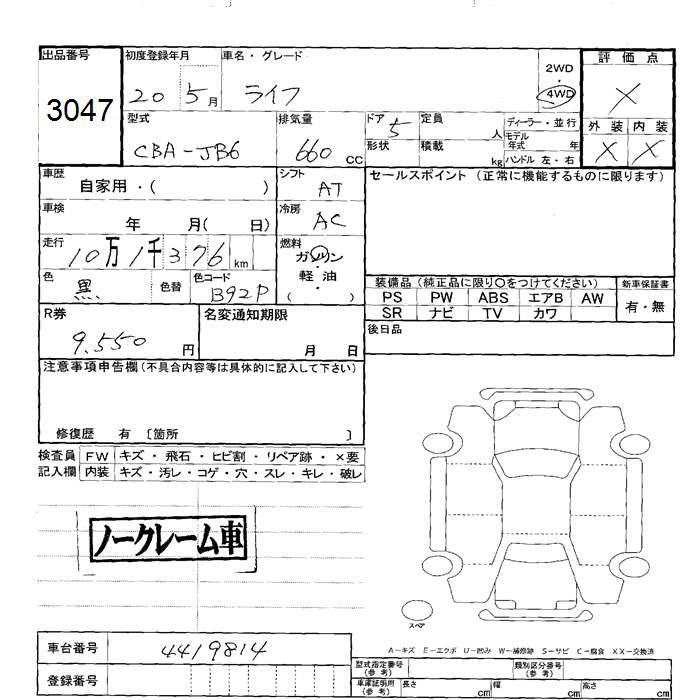 出品番号
3047
初度登録年月
20 5月
車名・グレード
ライフ
2WD
・
4WD
評価点
X
外装 内装
X X
型式
CBA-JB6
排気量
660 CC
ドア
5
形状
定員
人
積載
kg
ディーラー・並行
モデル
年式 年
ハンドル 左・右
車歴
自家用・( )
シフト
AT
車検
年 月( 日)
冷房
AC
走行
10万1千376km
燃料
ガソリン
・
軽油
・
( )
色
黒
色替
色コード
B92P
セールスポイント (正常に機能するものに限ります)
装備品 (純正品に限り〇をつけてください)
PS PW ABS エアB AW
SR ナビ TV カワ
新車保証書
有・無
後日品
R券
9,550円
名変通知期限
月 日
注意事項申告欄(不具合内容等は具体的に記入して下さい)
修復歴 有 〔箇所 〕
検査員
記入欄
FW キズ・飛石・ヒビ割・リペア跡・×要
内装 キズ・汚レ・コゲ・穴・スレ・キレ・破レ
ノークレーム車
スペア
A-キズ E-エクボ U-凹み W-補修跡 S-サビ C-腐食 XX-交換済
車台番号
4419814
登録番号
型式指定番号
(参考)
類別区分番号
(参考)
車庫証明用
(参考)
長さ cm
幅 cm
高さ cm